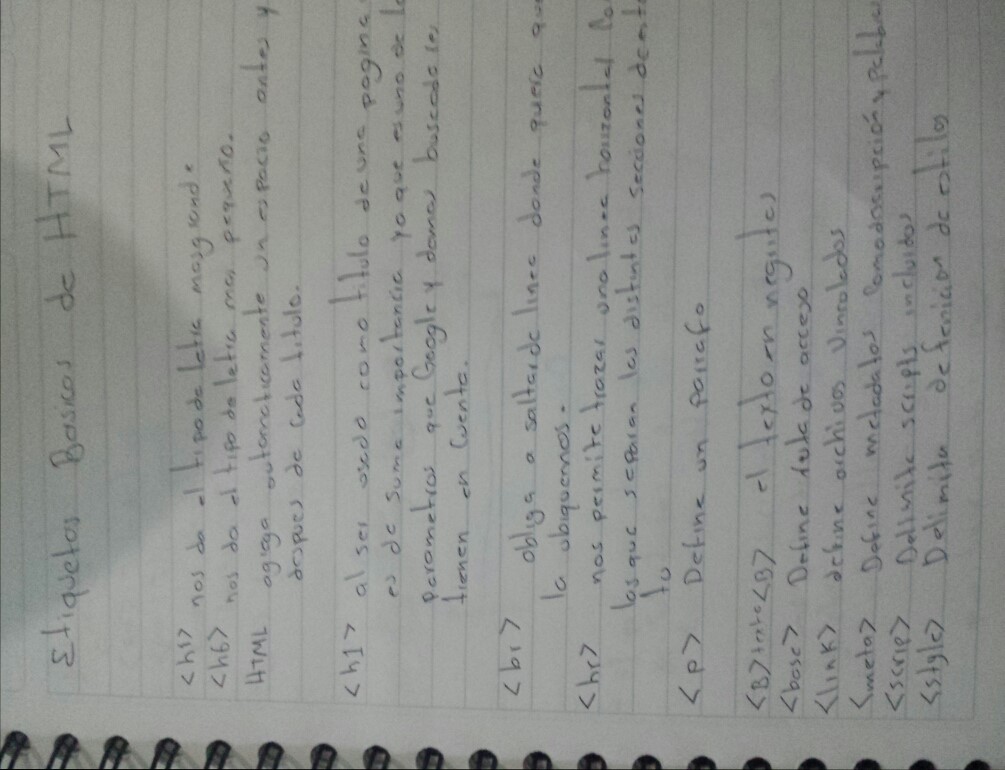 Etiquetas Basicas de HTML
<h1> nos da el tipo de letra mas grande
<h6> nos da el tipo de letra mas pequeño.
HTML agrega automaticamente un espacio antes y
despues de cada titulo.
<h1> al ser usado como titulo de una pagina
es de suma importancia ya que es uno de lo
parametros que Google y demas buscadores
tienen en cuenta.
<br> obliga a saltar de linea donde quiera que
la ubiquemos.
<hr> nos permite trazar una linea horizontal Co
las que separan las distintas secciones de este
to
<p> Define un parrafo
<B>texto<B> el texto en negritas
<base> Define de acceso
<link> define archivos vinculados
<meta> Define metadatos como descripción y palabra
<scrip> Delimite scripts incluidos
<style> Delimita definicion de estilos